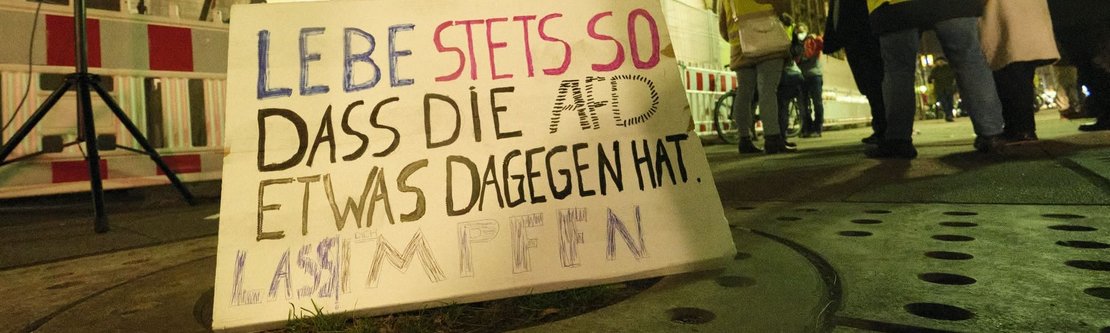 LEBE STETS SO
DASS DIE AFD
ETWAS DAGEGEN HAT.
LASS DICH IMPFEN